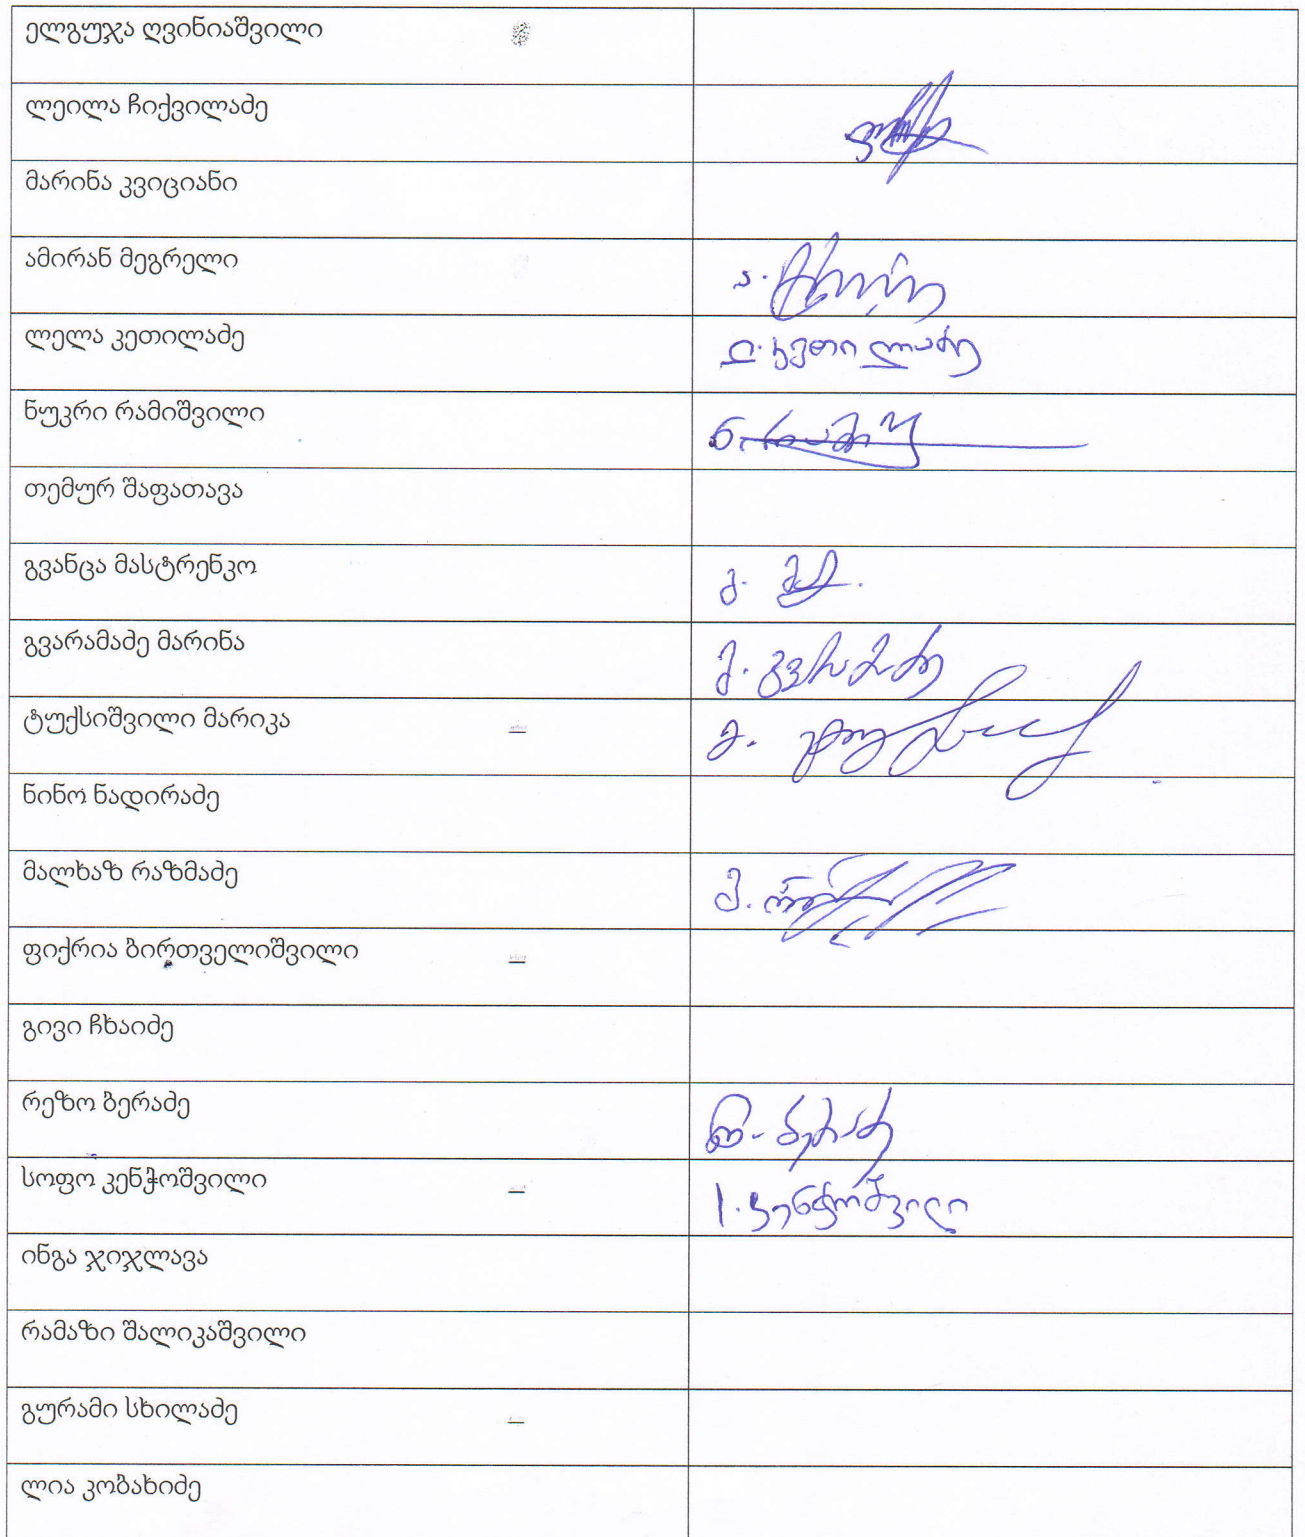 ელგუჯა ღვინიაშვილი
ლეილა ჩიქვილაძე
მარინა კვიციანი
ამირან მეგრელი
ა.
ლელა კეთილაძე
ლ. კეთილაძე
ნუკრი რამიშვილი
ნ.
თემურ შაფათავა
გვანცა მასტრენკო
გ.
გვარამაძე მარინა
მ. გვარამაძე
ტუქსიშვილი მარიკა
მ.
ნინო ნადირაძე
მალხაზ რაზმაძე
მ.
ფიქრია ბირთველიშვილი
გივი ჩხაიძე
რეზო ბერაძე
რ. ბერაძე
სოფო კენჭოშვილი
ს. კენჭოშვილი
ინგა ჯიჯლავა
რამაზი შალიკაშვილი
გურამი სხილაძე
ლია კობახიძე